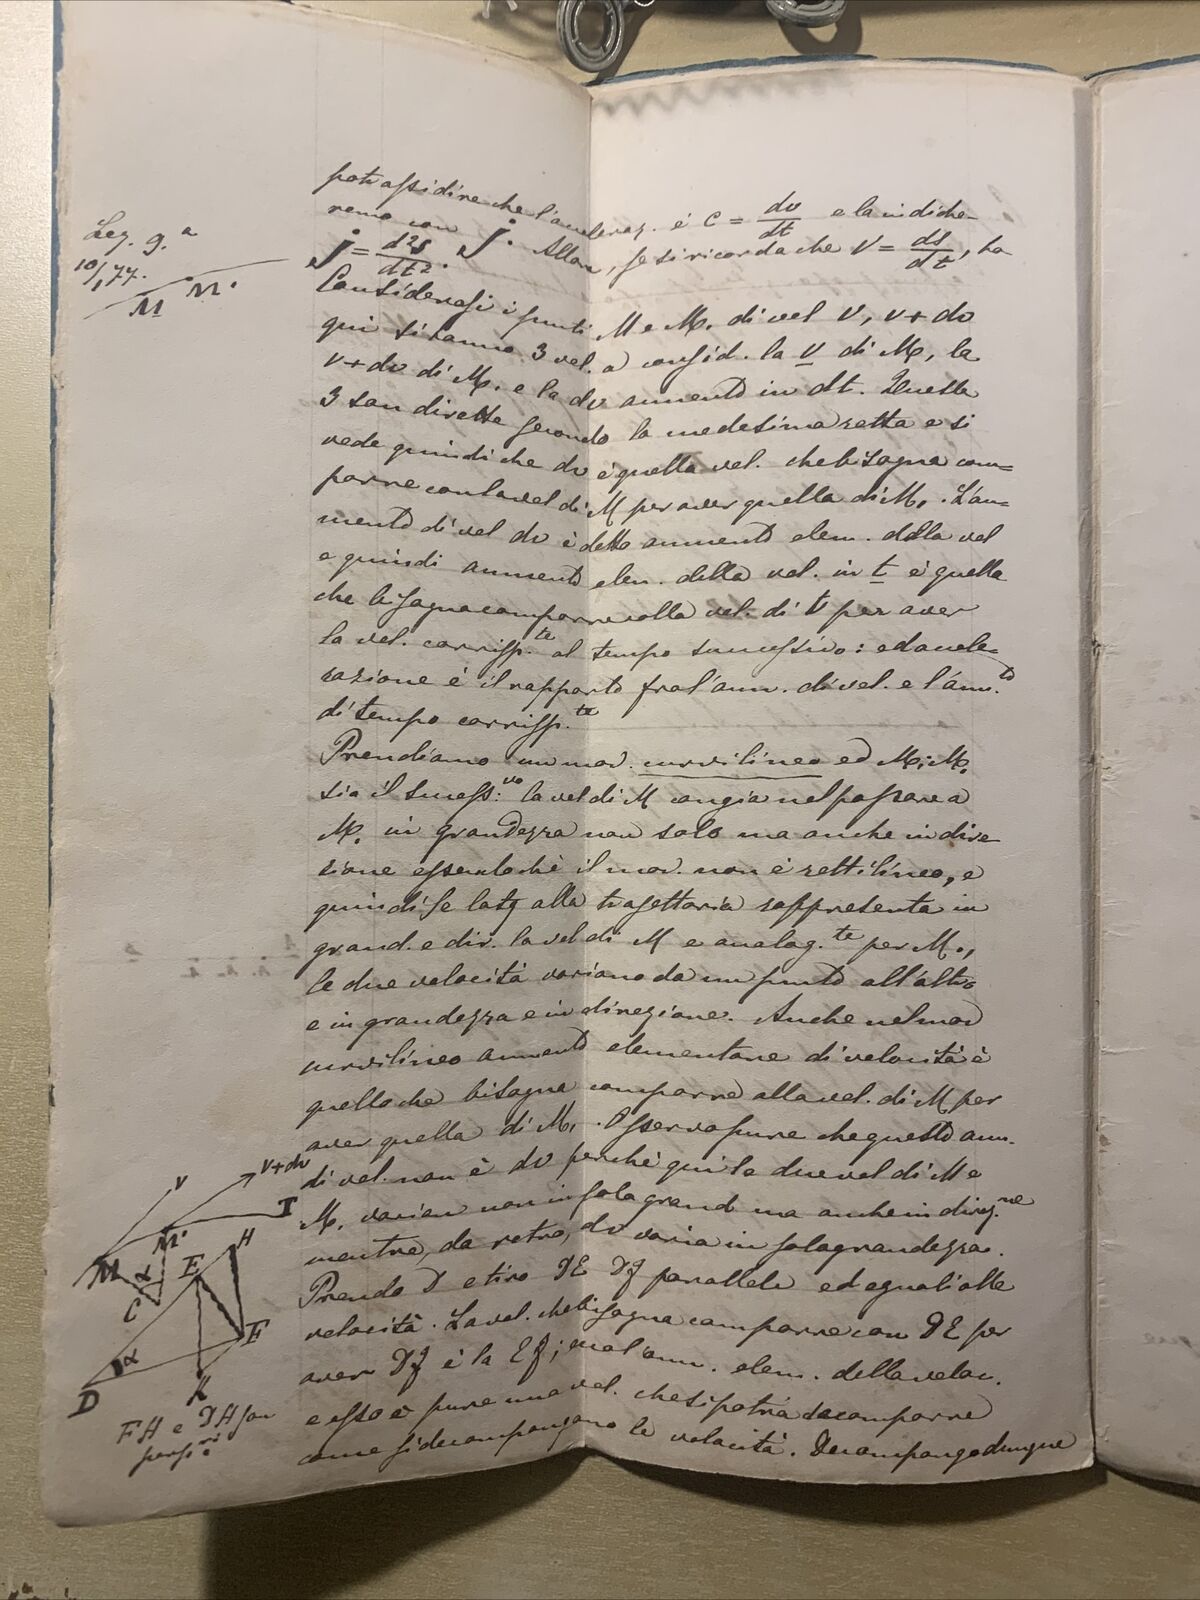 Lez. 9.a
10/1 77.
M M1
potrassi dire che l'acceleraz. è C = dv/dt e la indiche-
remo con j. Allora, se si ricorda che V = ds/dt, ha
j = d²s/dt².
Considerasi i punti M e M1 di vel V, v+dv
qui si hanno 3 vel. a consid. la v di M, la
v+dv di M1 e la dv aumento in dt. Queste
3 son dirette secondo la medesima retta e si
vede quindi che dv è quella vel. che bisogna com=
porre con la vel di M per aver quella di M1. L'au=
mento di vel dv è detto aumento elem. della vel
e quindi aumento elem. della vel. in t è quella
che bisogna comporre colla vel. di t per aver
la vel. corrisp.te al tempo successivo: ed accele-
razione è il rapporto fra l'aum. di vel. e l'aum.to
di tempo corrisp.te
Prendiamo un mov. curvilineo ed M; M1
sia il success.vo la vel di M cangia nel passare a
M1 in grandezza non solo ma anche in dire
zione essendochè il mov. non è rettilineo, e
quindi se la tg alla traiettoria rappresenta in
grand. e dir. la vel di M e analog.te per M1,
le due velocità variano da un punto all'altro
e in grandezza e in direzione. Anche nel mov
curvilineo aumento elementare di velocità è
quello che bisogna comporre alla vel. di M per
aver quella di M1. Osservo pure che questo aum.
di vel. non è dv perchè qui le due vel di M e
M1 varian non in sola grand ma anche in direz.ne
mentre, da retro, dv varia in sola grandezza.
Prendo D e tiro DE DF parallele ed eguali alle
velocità. La vel. che bisogna comporre con DE per
aver DF è la EF; ma l'aum. elem. della veloc.
e esso è pure una vel. che si potrà decomporre
come si decompongono le velocità. Decompongo dunque
V V+dv
M M1 T
α C
E H
α F
D K
FH e DH son
perp.ri